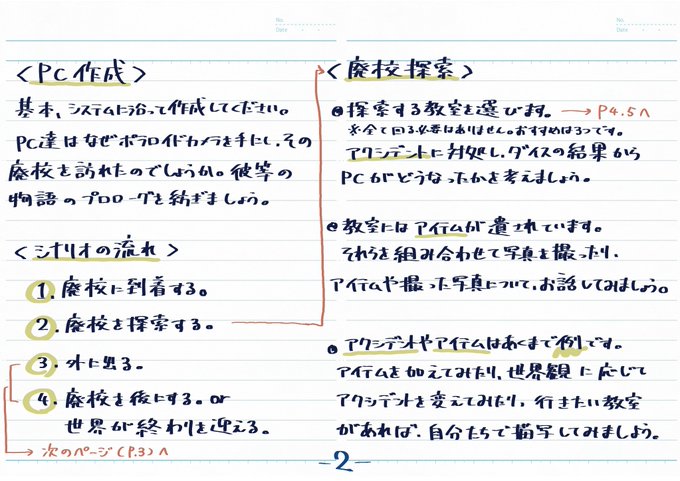 No.
Date
<PC作成>
基本、システムに沿って作成してください。
PC達はなぜポラロイドカメラを手にし、その
廃校を訪れたのでしょうか。彼等の
物語のプロローグを紡ぎましょう。
<シナリオの流れ>
1. 廃校に到着する。
2. 廃校を探索する。
3. 外に出る。
4. 廃校を後にする。or
世界が終わりを迎える。
→ 次のページ(P.3)へ
No.
Date
<廃校探索>
●探索する教室を選びます。 → P4.5へ
※全て回る必要はありません。おすすめは3つです。
アクシデントに対処し、ダイスの結果から
PCがどうなったかを考えましょう。
●教室にはアイテムが遺されています。
それらを組み合わせて写真を撮ったり、
アイテムや撮った写真について、お話してみましょう。
●アクシデントやアイテムはあくまで例です。
アイテムを加えてみたり、世界観に応じて
アクシデントを変えてみたり、行きたい教室
があれば、自分たちで描写してみましょう。
-2-